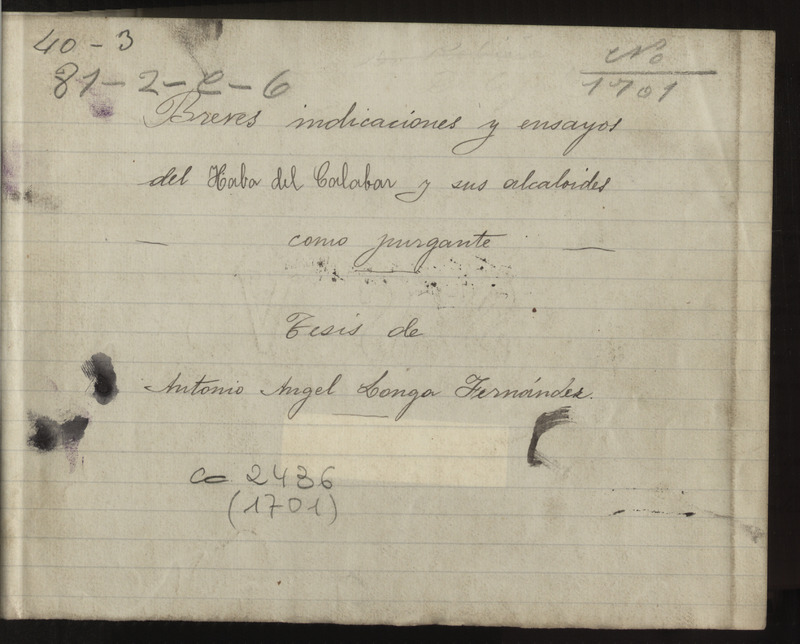 40 - 3
81-2-C-6
Nº
1701
Breves indicaciones y ensayos
del Haba del Calabar y sus alcaloides
— como purgante —
Tesis de
Antonio Angel Longa Fernández.
ca 2436
(1701)